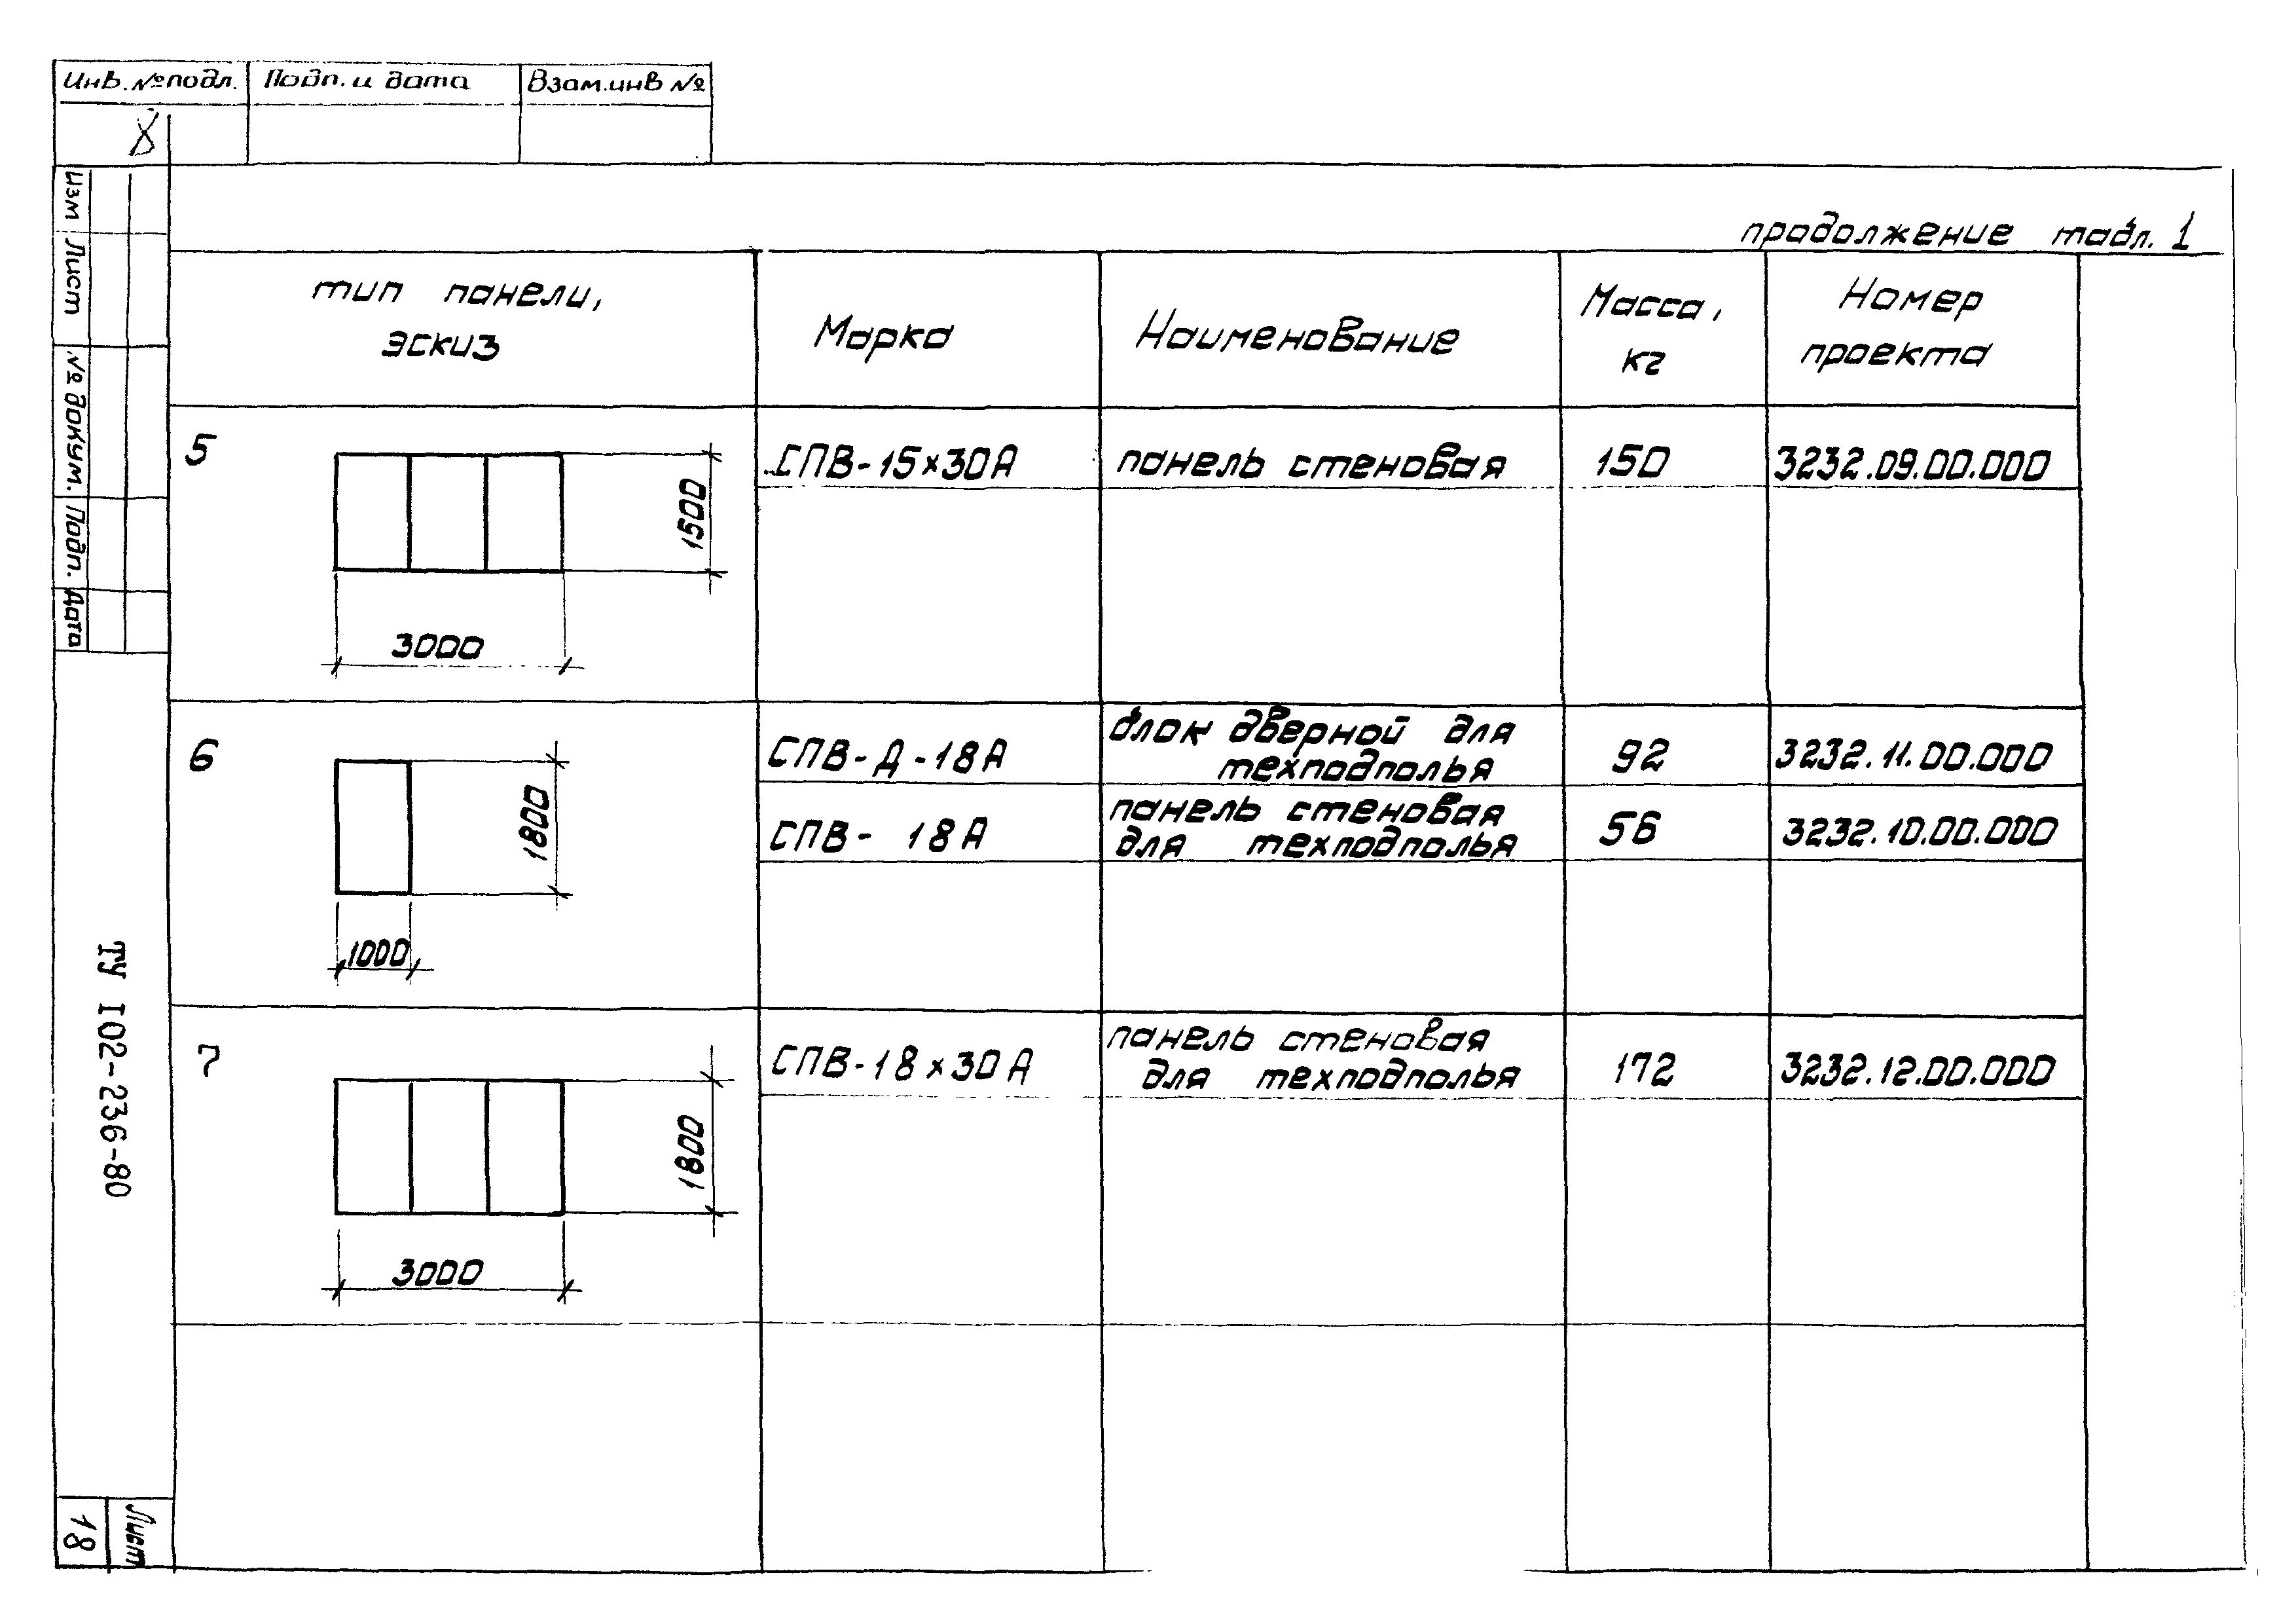 Инв. № подл. Подп. и дата Взам. инв №
продолжение табл. 1
тип панели, эскиз Марка Наименование Масса, кг Номер проекта
5 СПВ-15×30А панель стеновая 150 3232.09.00.000
1500
3000
6 СПВ-Д-18А блок дверной для техподполья 92 3232.11.00.000
СПВ- 18А панель стеновая для техподполья 56 3232.10.00.000
1800
1000
7 СПВ-18×30А панель стеновая для техподполья 172 3232.12.00.000
1800
3000
Изм Лист № докум. Подп. Дата
ТУ 102-236-80
Лист
18